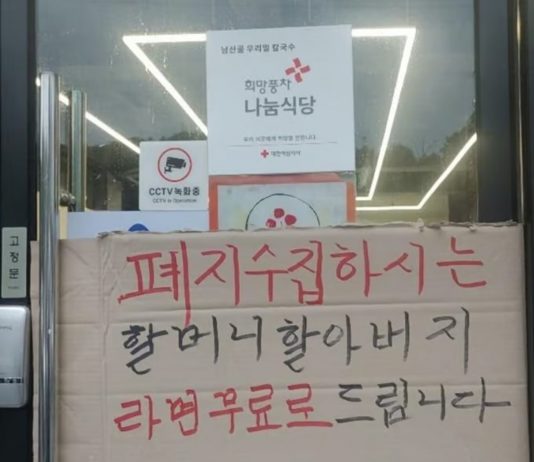 남산골 우리밀 칼국수
희망풍차
나눔식당
우리 이웃에게 희망을 전합니다.
대한적십자사
CCTV 녹화중
CCTV in Operation
고정문
폐지수집하시는
할머니할아버지
라면무료로드립니다